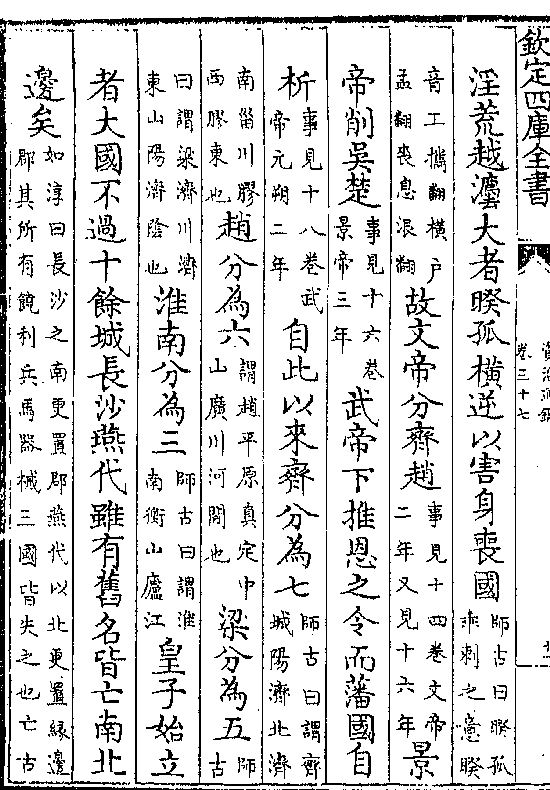 欽定四庫全書
資治通鑑
卷三十七
淫荒越灋大者暌孤橫逆以害身喪國師古曰暌孤乖刺之意暌
音工攜翻橫戶孟翻喪息浪翻故文帝分齊趙事見十四卷文帝二年又見十六年景
帝削吳楚事見十六卷景帝三年武帝下推恩之令而藩國自
析事見十八卷武帝元朔二年自此以來齊分為七師古曰謂齊城陽濟北濟
南菑川膠西膠東也趙分為六謂趙平原真定中山廣川河間也梁分為五師古
曰謂梁濟川濟東山陽濟陰也淮南分為三師古曰謂淮南衡山廬江皇子始立
者大國不過十餘城長沙燕代雖有舊名皆亡南北
邊矣如淳曰長沙之南更置郡燕代以北更置緣邊郡其所有饒利兵馬器械三國皆失之也亡古